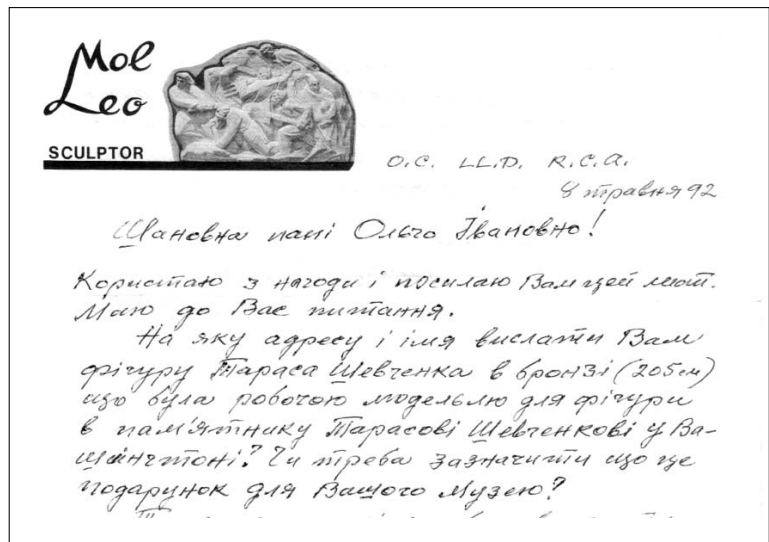 Mol
Leo
SCULPTOR
O.C. LL.D. R.C.A.
8 травня 92
Шановна пані Ольго Івановно!
Користаю з нагоди і посилаю Вам цей лист.
Маю до Вас питання.
На яку адресу і імя вислати Вам
фігуру Тараса Шевченка в бронзі (205см)
що була робочою модельлю для фігури
в пам'ятнику Тарасові Шевченкові у Ва-
шінгтоні? Чи треба зазначити що це
подарунок для Вашого Музею?